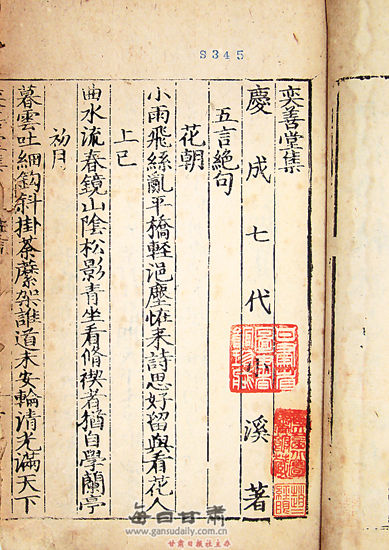 S345
奕善堂集
慶成七代小溪著
五言絶句
花朝
小雨飛絲亂平橋輕浥塵催来詩思好留與看花人
上巳
曲水流春鏡山陰松影青坐看脩禊者猶自學蘭亭
初月
暮雲吐細鈎斜掛荼蘼架誰道未安輪清光滿天下
每日甘肃
www.gansudaily.com.cn
甘肃日报社主办